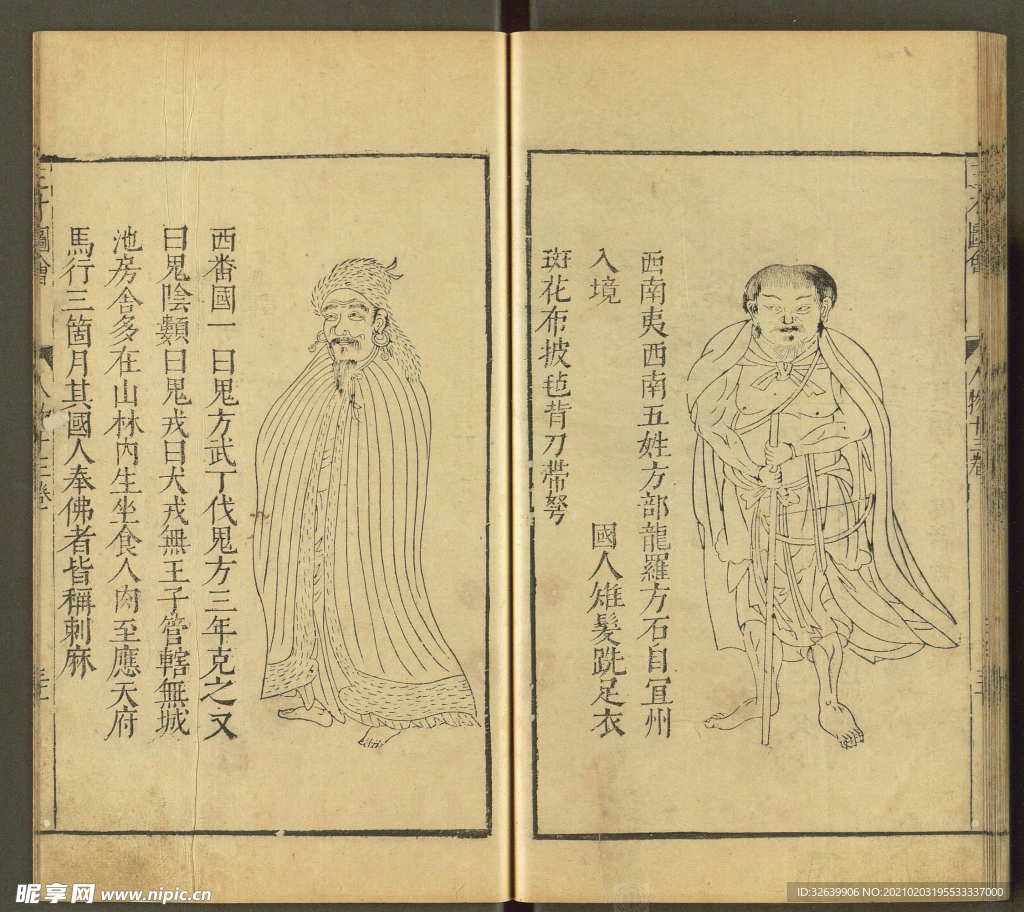 三才圖會
人物十三卷
西南夷西南五姓方部龍羅方石自冝州
入境 國人雉髮跣足衣
斑花布披毡背刀帶弩
西番國一曰鬼方武丁伐鬼方三年克之又
曰鬼陰類曰鬼戎曰犬戎無王子管轄無城
池房舍多在山林內生坐食人肉至應天府
馬行三箇月其國人奉佛者皆稱剌麻
三才圖會
人物十三卷
昵享网 www.nipic.cn
ID:32639906 NO:20210203195533337000